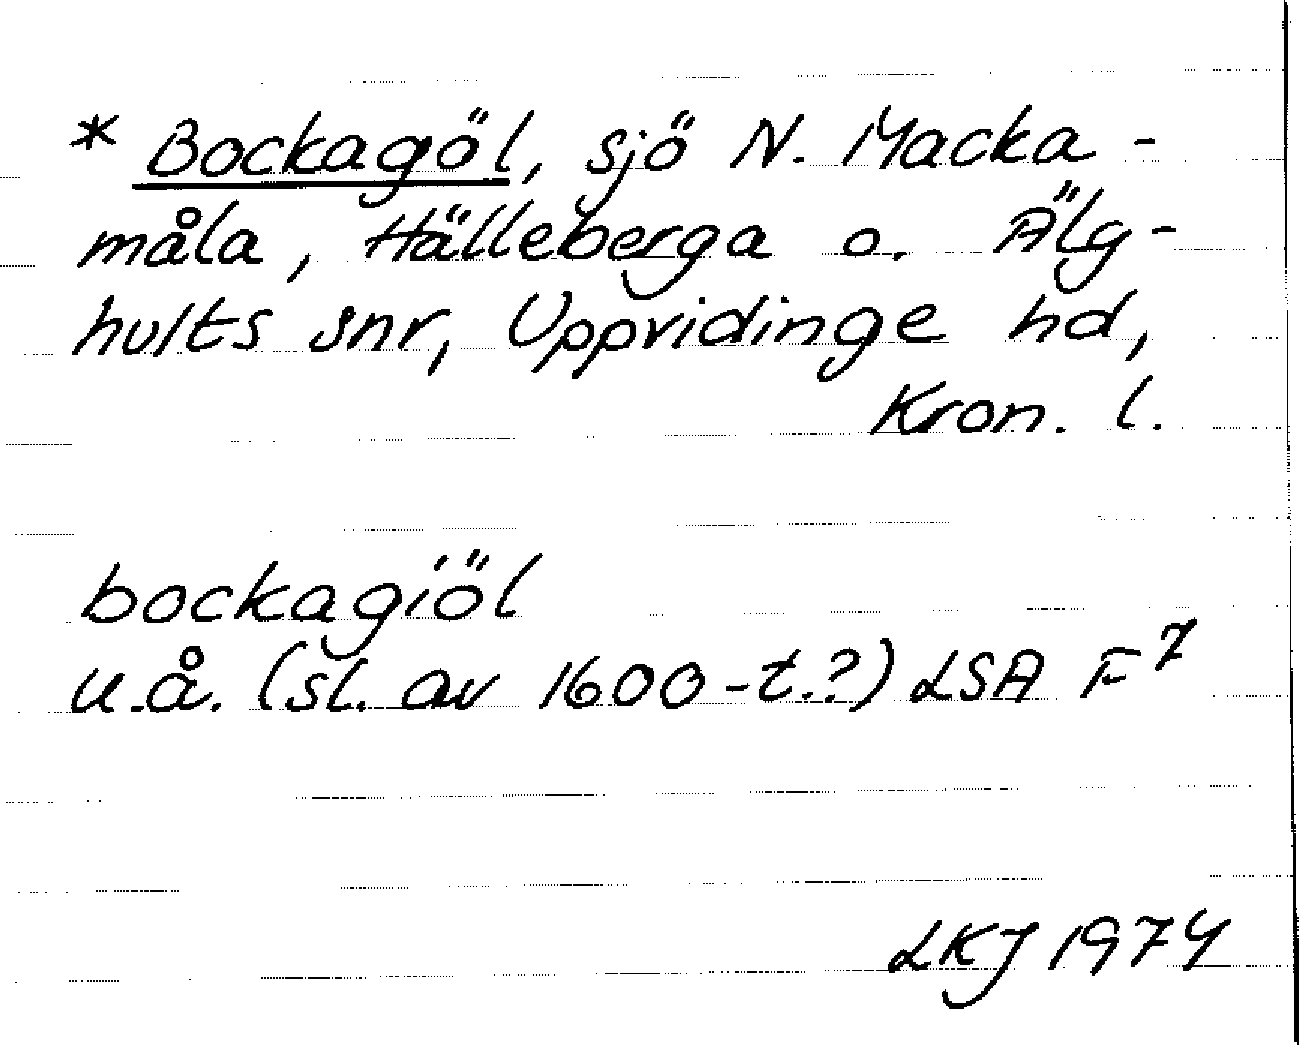 * Bockagöl, sjö N. Macka-
måla, Hälleberga o. Älg-
hults snr, Uppvidinge hd,
Kron. l.
bockagiöl
u.å. (sl. av 1600-t.?) LSA F⁷
LKJ 1974